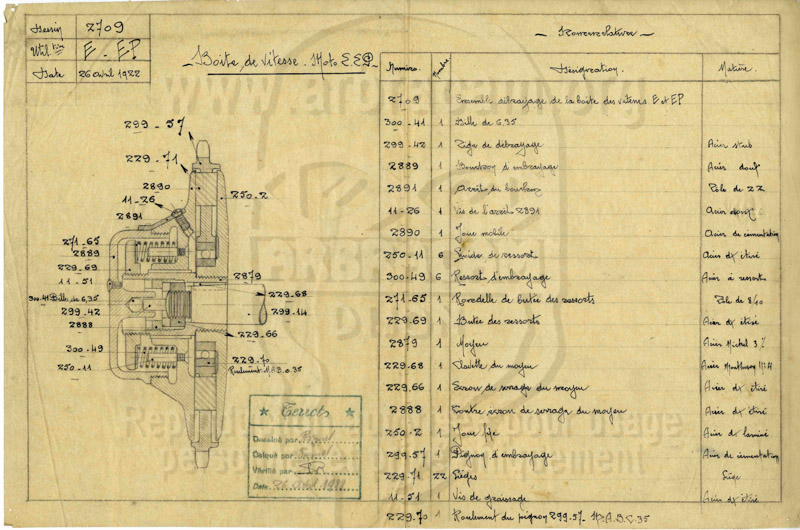 Dessin 2709
Util.tion E - EP
Date 26 avril 1922
Boite de vitesse. Moto E.EP
Nomenclature
Numéro. Nombre Désignation. Matière
2709 Ensemble embrayage de la boite des vitesses E et EP
300-41 1 Bille de 6,35
299-42 1 Tige de débrayage Acier stub
2889 1 Bouchon d'embrayage Acier doux
2891 1 Arrêt du bouchon Tôle de
11-26 1 Vis de l'arrêt 2891 Acier doux
2890 1 Joue mobile Acier de cémentation
250-11 6 Guide de ressort Acier dx étiré
300-49 6 Ressort d'embrayage Acier à ressort
271-65 1 Rondelle de butée des ressorts Tôle de 8/10
229-69 1 Butée des ressorts Acier dx étiré
2879 1 Moyeu Acier Nickel 3%
229-68 1 Clavette du moyeu Acier
229.66 1 Ecrou de serrage du moyeu Acier dx étiré
2888 1 Contre écrou de serrage du moyeu Acier dx étiré
250-2 1 Joue fixe Acier dx laminé
299.57 1 Pignon d'embrayage Acier de cémentation
229-71 22 Lièges Liège
11-51 1 Vis de graissage Acier dx étiré
229.70 1 Roulement du pignon 299.57
299-57
229-71
2890
11-26
2891
250-2
271-65
2889
229-69
11-51
300-41 Bille de 6,35
299-42
2888
300-49
250-11
2879
229-68
299-14
229-66
229-70
Roulement
Terrot
Dessiné par
Calqué par
Vérifié par
Date 26 avril 1922
www.
.org
Reproduction
usage
personnel